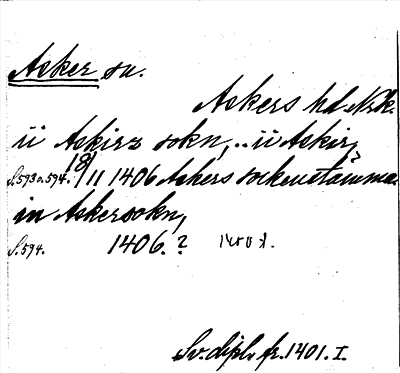 Asker sn.
Askers hd. Nrk.
ii Askirs sokn, .. ii Askir,
S.593 o.594. 18/11 1406 Askers sockenstämma
in Askersokn,
S.594. 1406.?
Sv. dipl. fr. 1401. I.